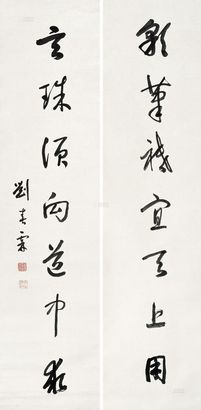 彩筆祗宜天上用
玄珠須向道中求
劉春霖